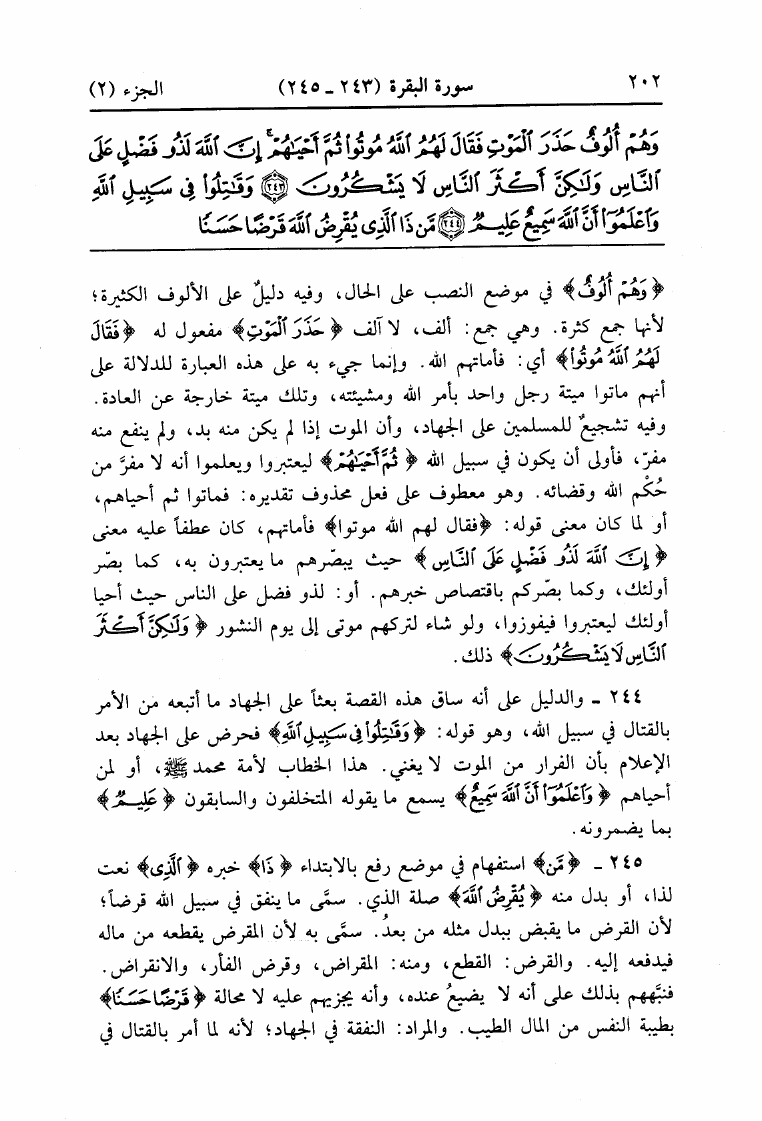 ٢٠٢ سورة البقرة (٢٤٣ ـ ٢٤٥) الجزء (٢)
وَهُمْ أُلُوفٌ حَذَرَ الْمَوْتِ فَقَالَ لَهُمُ اللَّهُ مُوتُوا ثُمَّ أَحْيَاهُمْ ۚ إِنَّ اللَّهَ لَذُو فَضْلٍ عَلَى
النَّاسِ وَلَٰكِنَّ أَكْثَرَ النَّاسِ لَا يَشْكُرُونَ ﴿٢٤٣﴾ وَقَاتِلُوا فِي سَبِيلِ اللَّهِ
وَاعْلَمُوا أَنَّ اللَّهَ سَمِيعٌ عَلِيمٌ ﴿٢٤٤﴾ مَّن ذَا الَّذِي يُقْرِضُ اللَّهَ قَرْضًا حَسَنًا
﴿وَهُمْ أُلُوفٌ﴾ في موضع النصب على الحال، وفيه دليلٌ على الألوف الكثيرة؛
لأنها جمع كثرة. وهي جمع: ألف، لا آلف ﴿حَذَرَ الْمَوْتِ﴾ مفعول له ﴿فَقَالَ
لَهُمُ اللَّهُ مُوتُوا﴾ أي: فأماتهم الله. وإنما جيء به على هذه العبارة للدلالة على
أنهم ماتوا ميتة رجل واحد بأمر الله ومشيئته، وتلك ميتة خارجة عن العادة.
وفيه تشجيعٌ للمسلمين على الجهاد، وأن الموت إذا لم يكن منه بد، ولم ينفع منه
مفرّ، فأولى أن يكون في سبيل الله ﴿ثُمَّ أَحْيَاهُمْ﴾ ليعتبروا ويعلموا أنه لا مفرَّ من
حُكْم الله وقضائه. وهو معطوف على فعل محذوف تقديره: فماتوا ثم أحياهم،
أو لما كان معنى قوله: ﴿فقال لهم الله موتوا﴾ فأماتهم، كان عطفاً عليه معنى
﴿إِنَّ اللَّهَ لَذُو فَضْلٍ عَلَى النَّاسِ﴾ حيث يبصّرهم ما يعتبرون به، كما بصّر
أولئك، وكما بصّركم باقتصاص خبرهم. أو: لذو فضل على الناس حيث أحيا
أولئك ليعتبروا فيفوزوا، ولو شاء لتركهم موتى إلى يوم النشور ﴿وَلَٰكِنَّ أَكْثَرَ
النَّاسِ لَا يَشْكُرُونَ﴾ ذلك.
٢٤٤ ـ والدليل على أنه ساق هذه القصة بعثاً على الجهاد ما أتبعه من الأمر
بالقتال في سبيل الله، وهو قوله: ﴿وَقَاتِلُوا فِي سَبِيلِ اللَّهِ﴾ فحرض على الجهاد بعد
الإعلام بأن الفرار من الموت لا يغني. هذا الخطاب لأمة محمد ﷺ، أو لمن
أحياهم ﴿وَاعْلَمُوا أَنَّ اللَّهَ سَمِيعٌ﴾ يسمع ما يقوله المتخلفون والسابقون ﴿عَلِيمٌ﴾
بما يضمرونه.
٢٤٥ ـ ﴿مَّن﴾ استفهام في موضع رفع بالابتداء ﴿ذَا﴾ خبره ﴿الَّذِي﴾ نعت
لذا، أو بدل منه ﴿يُقْرِضُ اللَّهَ﴾ صلة الذي. سمَّى ما ينفق في سبيل الله قرضاً؛
لأن القرض ما يقبض ببدل مثله من بعدُ. سمَّى به لأن المقرض يقطعه من ماله
فيدفعه إليه. والقرض: القطع، ومنه: المقراض، وقرض الفأر، والانقراض.
فنبَّههم بذلك على أنه لا يضيعُ عنده، وأنه يجزيهم عليه لا محالة ﴿قَرْضًا حَسَنًا﴾
بطيبة النفس من المال الطيب. والمراد: النفقة في الجهاد؛ لأنه لما أمر بالقتال في